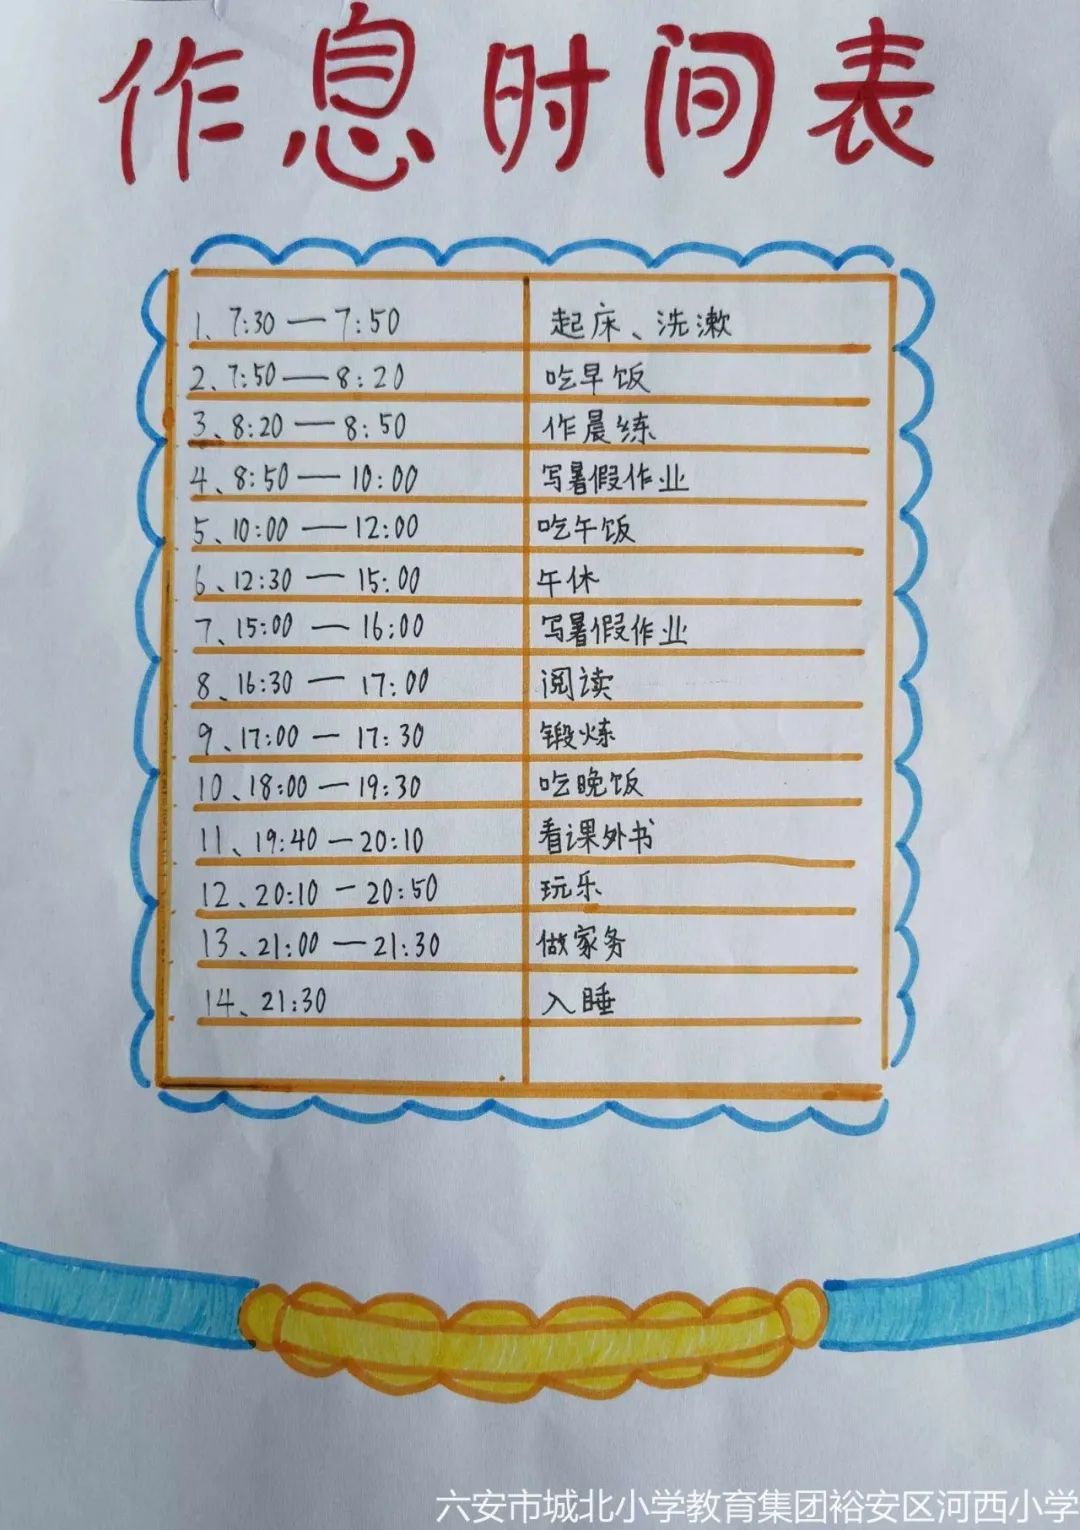 作息时间表
1、7:30 — 7:50 起床、洗漱
2、7:50 — 8:20 吃早饭
3、8:20 — 8:50 作晨练
4、8:50 — 10:00 写暑假作业
5、10:00 — 12:00 吃午饭
6、12:30 — 15:00 午休
7、15:00 — 16:00 写暑假作业
8、16:30 — 17:00 阅读
9、17:00 — 17:30 锻炼
10、18:00 — 19:30 吃晚饭
11、19:40 — 20:10 看课外书
12、20:10 — 20:50 玩乐
13、21:00 — 21:30 做家务
14、21:30 入睡
六安市城北小学教育集团裕安区河西小学